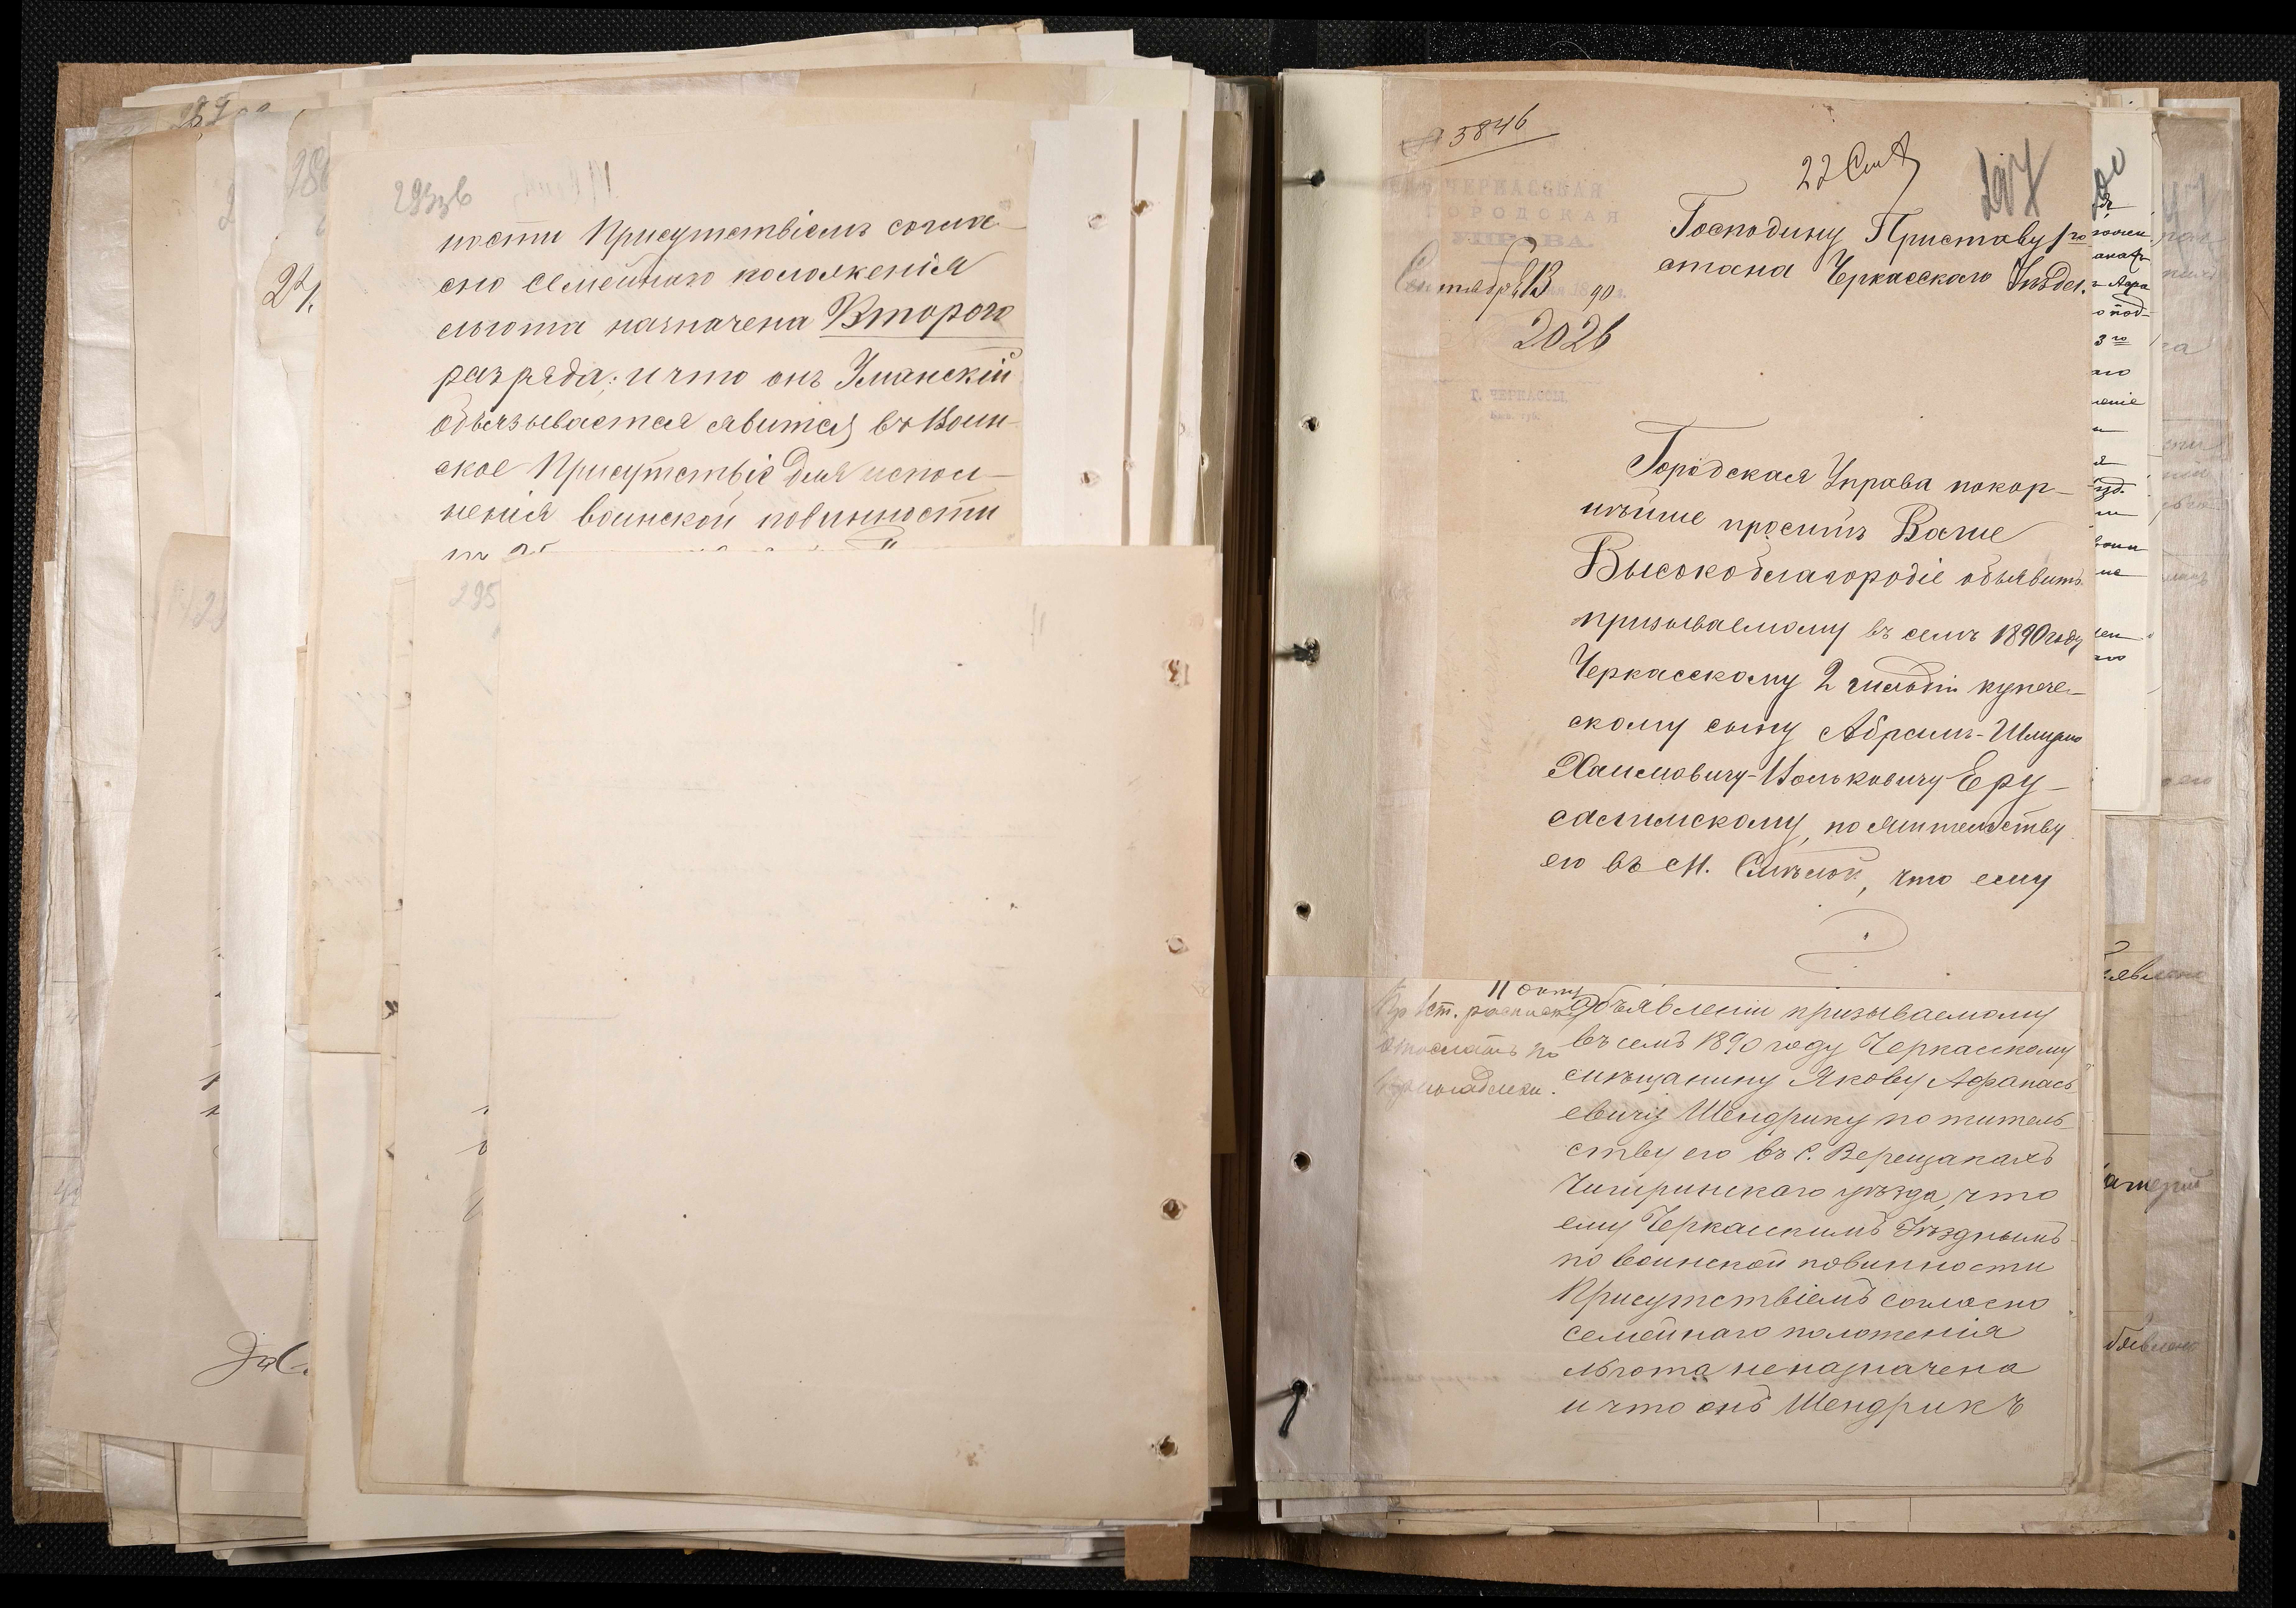 293зв
ности Присутствіемъ соглa-
сно семейнаго положенія
льгота назначена Второго
разряда; и что онъ Уманскій
обьязывается явится въ Воин-
ское Присутствіе для испол-
ненія воинской повинности
295
5846
22 Снт
297
ЧЕРКАССКАЯ
ГОРОДСКАЯ
УПРАВА.
Сентября 13 90
2026
Г. ЧЕРКАССЫ
Господину Приставу 1го
стана Черкасскаго Уѣзда.
Городская Управа покор-
нѣйше проситъ Ваше
Высокоблагородіе объявить
призываемому въ семъ 1890 году
Черкасскому 2 гильдіи купече-
скому сыну Абрамъ-Шлиумо
Хаимовичу-Вольковичу Еру-
салимскому, по жительству
его въ м. Смѣлой, что ему
11 Окт
1 ст. расписк
отослать по
принадлежн.
Объявленіи призываемому
въ семъ 1890 году Черкасскому
мѣщанину Якову Афанась-
евичу Шендрику по житель-
ству его въ с. Верещакахъ
Чигиринскаго уѣзда, что
ему Черкасскимъ Уѣзднымъ
по воинской повинности
Присутствіемъ согласно
семейнаго положенія
льгота неназначена
и что онъ Шендрикъ